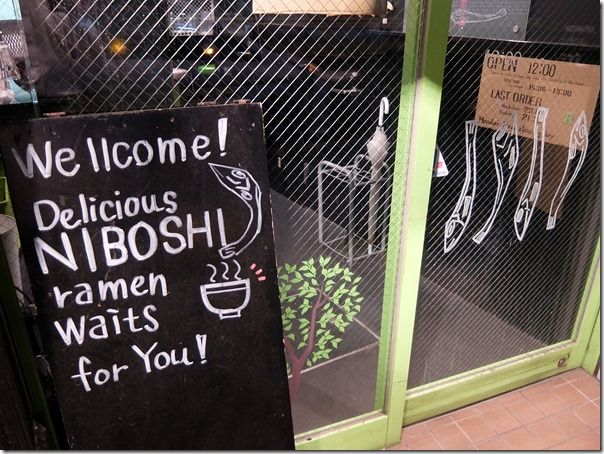 Wellcome!
Delicious
NIBOSHI
ramen
waits
for You!
OPEN 12:00
15:00-18:00
LAST ORDER